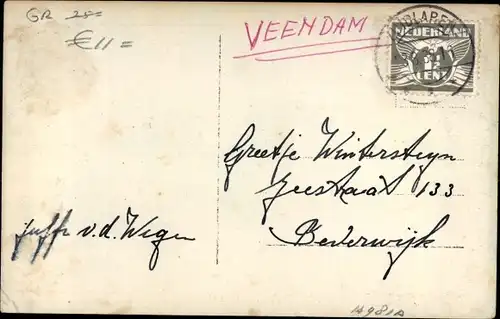 GR 25=
€11=
VEENDAM
NEDERLAND
1½
CENT
Greetje Wintersteyn
Zeestraat 133
Beverwijk
juffr v.d. Wegen
14981A